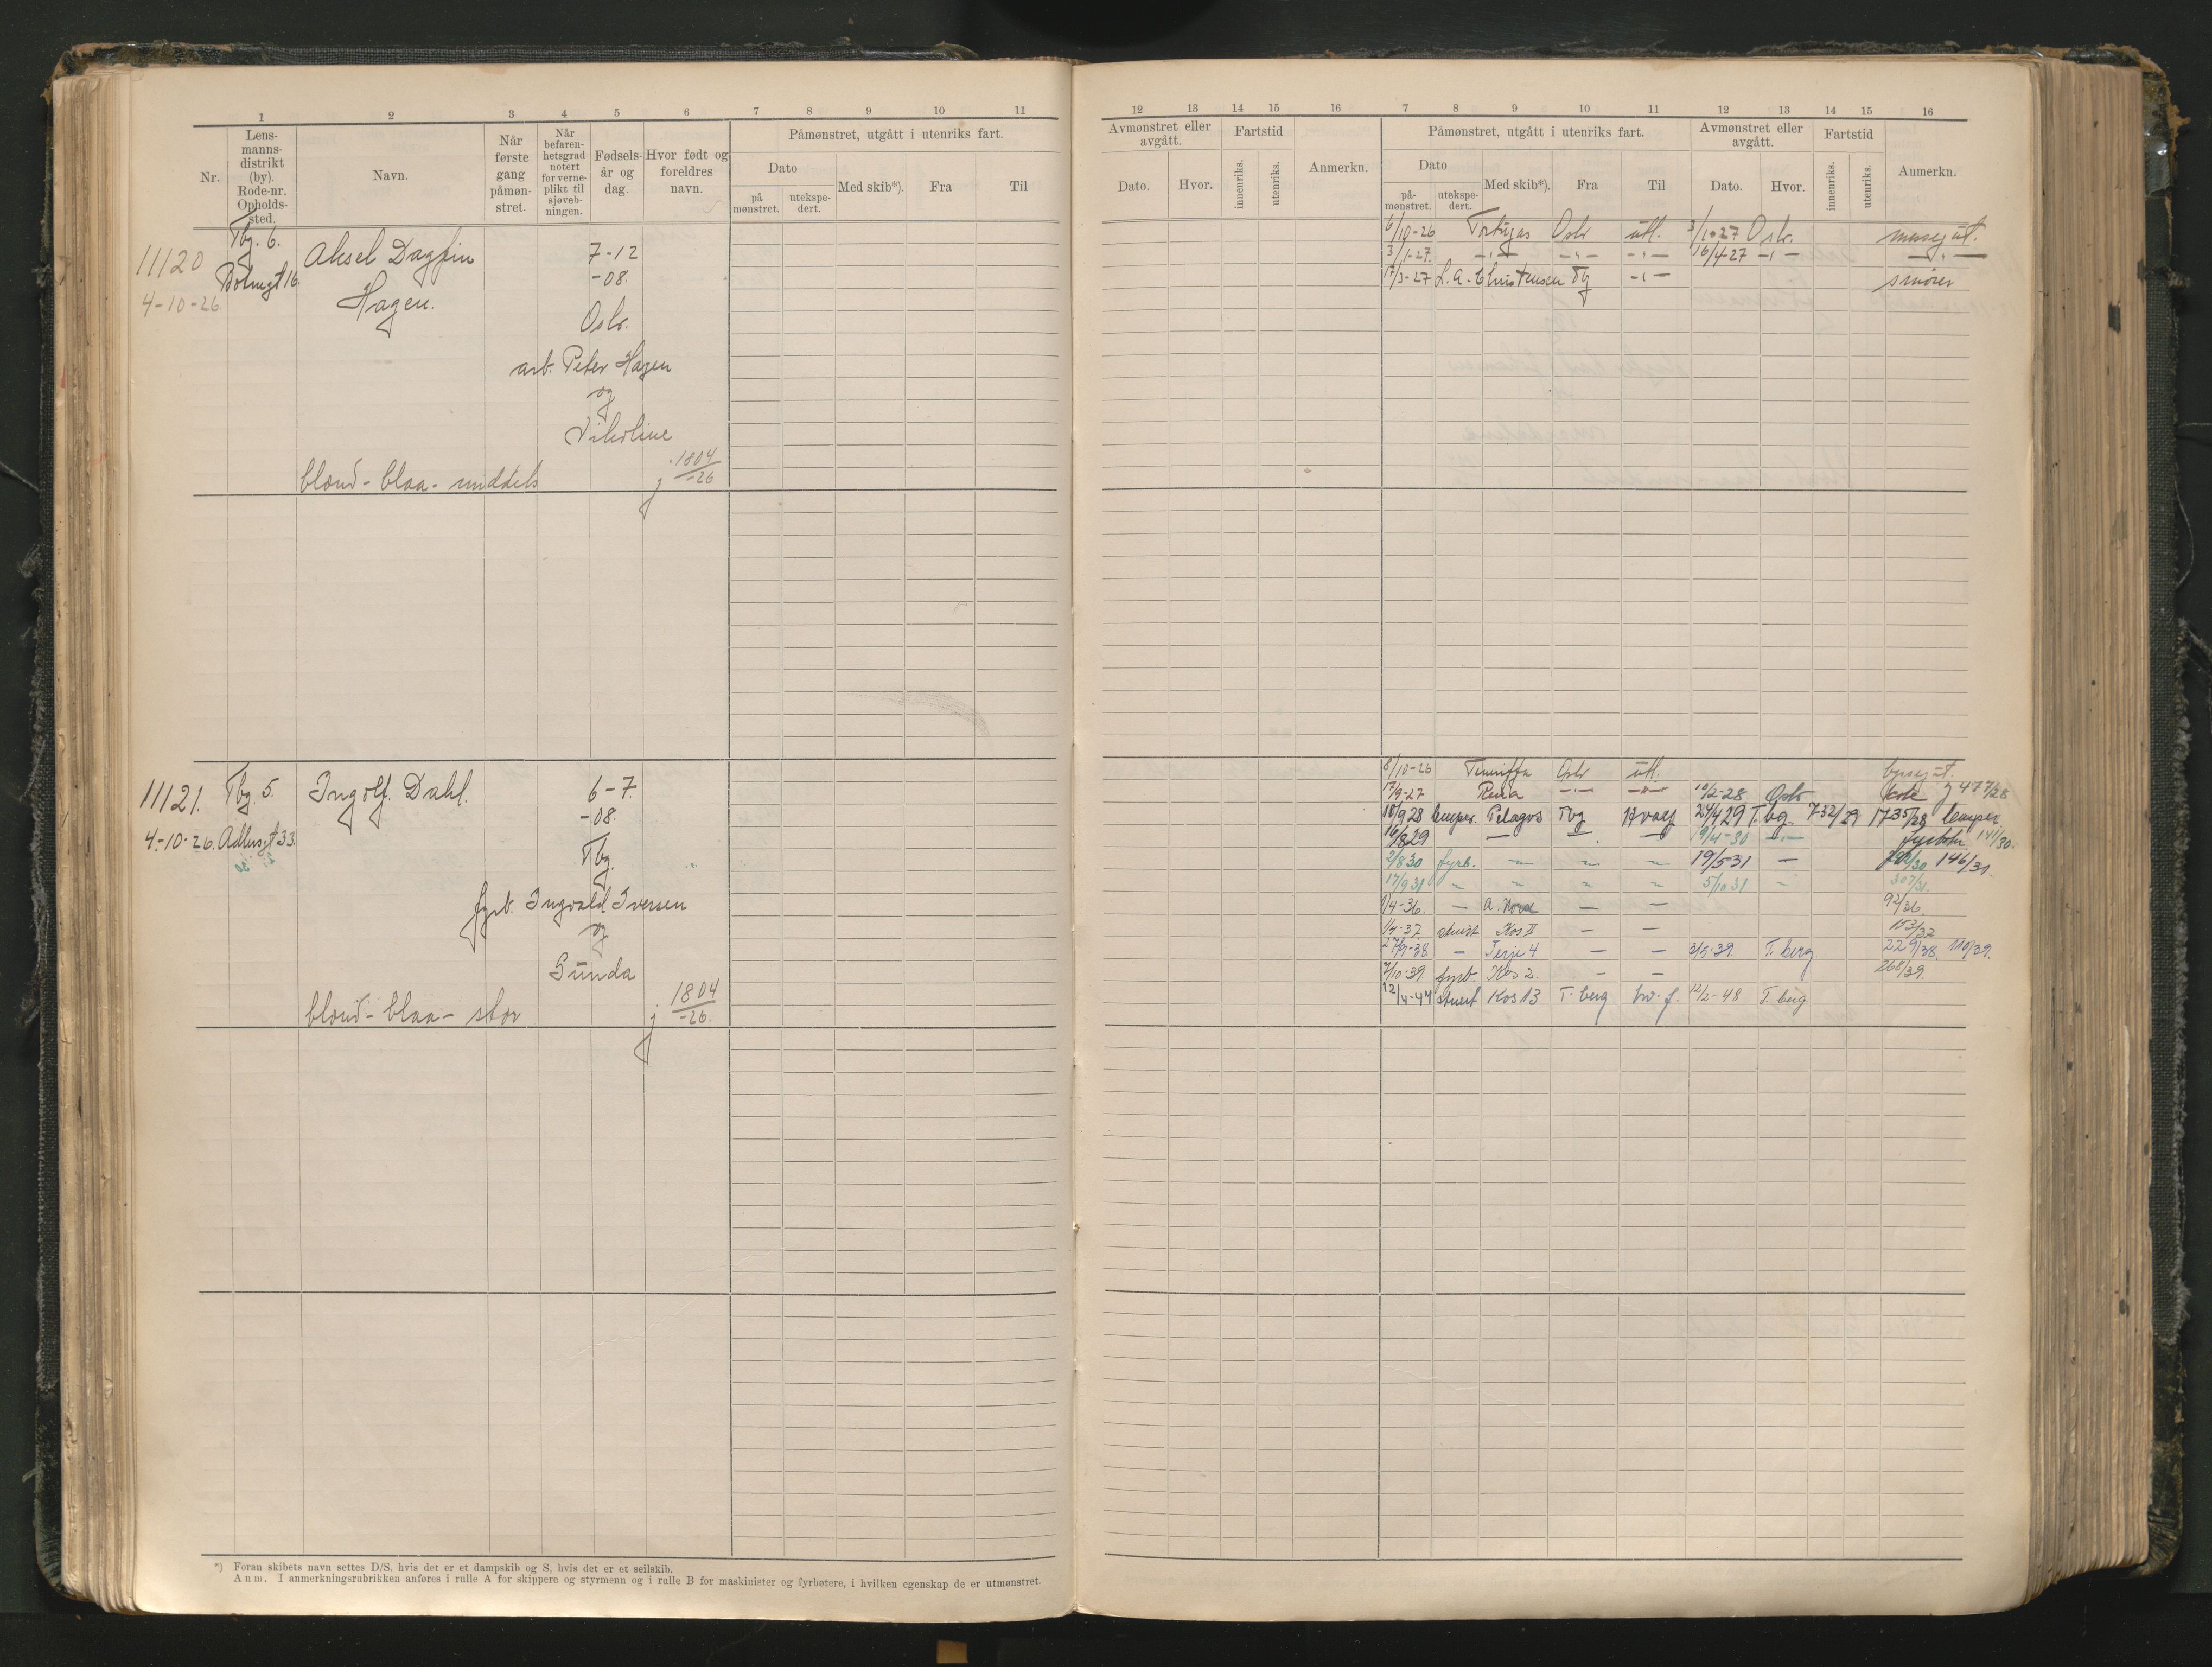 1 2 3 4 5 6 7 8 9 10 11
Nr.
Lens-
manns-
distrikt
(by).
Rode-nr.
Opholds-
sted.
Navn.
Når
første
gang
påmøn-
stret.
Når
befaren-
hetsgrad
notert
for verne-
plikt til
sjøveb-
ningen.
Fødsels-
år og
dag.
Hvor født og
foreldres
navn.
Påmønstret, utgått i utenriks fart.
Dato
på
mønstret.
utekspe-
dert.
Med skib*).
Fra
Til
11120
4-10-26
Tbg. 6.
16.
Aksel Dagfin
Hagen.
7-12
-08.
Oslo.
arb. Peter Hagen
og
Nikoline
blond - blaa - middels
j 1804/-26
11121.
4-10-26.
Tbg. 5.
33.
Ingolf Dahl.
6-7.
-08.
Tbg.
fyrb. Ingvald Iversen
og
Gunda
blond - blaa - stor
j 1804/-26.
*) Foran skibets navn settes D/S, hvis det er et dampskib og S, hvis det er et seilskib.
Anm. I anmerkningsrubrikken anføres i rulle A for skippere og styrmenn og i rulle B for maskinister og fyrbøtere, i hvilken egenskap de er utmønstret.
12 13 14 15 16 7 8 9 10 11 12 13 14 15 16
Avmønstret eller
avgått.
Dato.
Hvor.
Fartstid
innenriks.
utenriks.
Anmerkn.
Påmønstret, utgått i utenriks fart.
Dato
på-
mønstret.
utekspe-
dert.
Med skib*).
Fra
Til
Avmønstret eller
avgått.
Dato.
Hvor.
Fartstid
innenriks.
utenriks.
Anmerkn.
6/10-26 Tortugas Oslo utl. 3/1-27 Oslo. messegut.
3/1-27. -"- -"- -"- 16/4-27 -"- -"-
17/3-27 L. A. Christensen Tbg -"- smører
8/10-26 Teneriffa Oslo utl. byssegut.
17/9-27 Rena -"- -"- 10/2-28 Oslo kokk j 477/28
18/9 28 lemper. Pelagos Tbg Hvalf 24/4 29 Tbg. 732/29 1735/28 lemper.
16/8 29 — — — 19/4-30 -"- fyrbøter 141/30.
2/8 30 fyrb. — — — 19/5-31 — 146/31.
17/9 31 " " " " 5/10 31 " 307/31.
1/4-36. — A. Horse — — 92/36.
1/4-37. stuert Kos II — — 153/37
27/9-38 — Terje 4 — — 3/5-39. T.berg. 229/38. 110/39.
7/10-39. fyrb. Kos 2. — — 268/39.
12/4-47 stuert Kos 13 T.berg hv. f. 12/2-48 T.berg